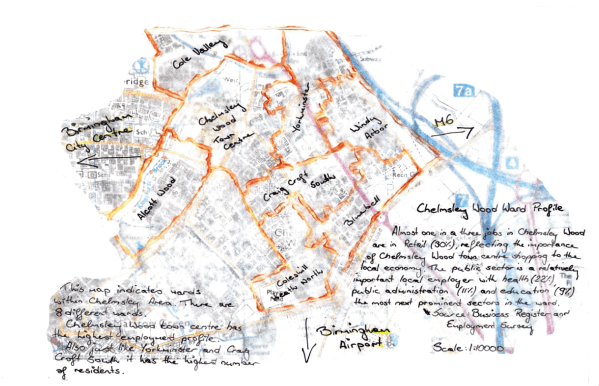 Cole Valley
Chelmsley
Wood
Town
Centre
Yorkminster
Windy
Arbor
7a
M6
Birmingham
City Centre
Alcott Wood
Craig Croft
South
Bluebell
Coleshill
Heath North
Birmingham
Airport
Chelmsley Wood Ward Profile
Almost one in a three jobs in Chelmsley Wood
are in Retail (30%), reflecting the importance
of Chelmsley Wood town centre shopping to the
local economy. The public sector is a relatively
important local employer with health (22%)
public administration (11%) and education (9%) The
the most next prominent sectors in the ward.
Source Business Register and
Employment Survey
Scale: 1:10000
This map indicates wards
within Chelmsley Area. There are
8 different wards.
Chelmsley Wood town centre has
the highest employment profile.
Also just like Yorkminster and Craig
Croft South it has the highest number
of residents.